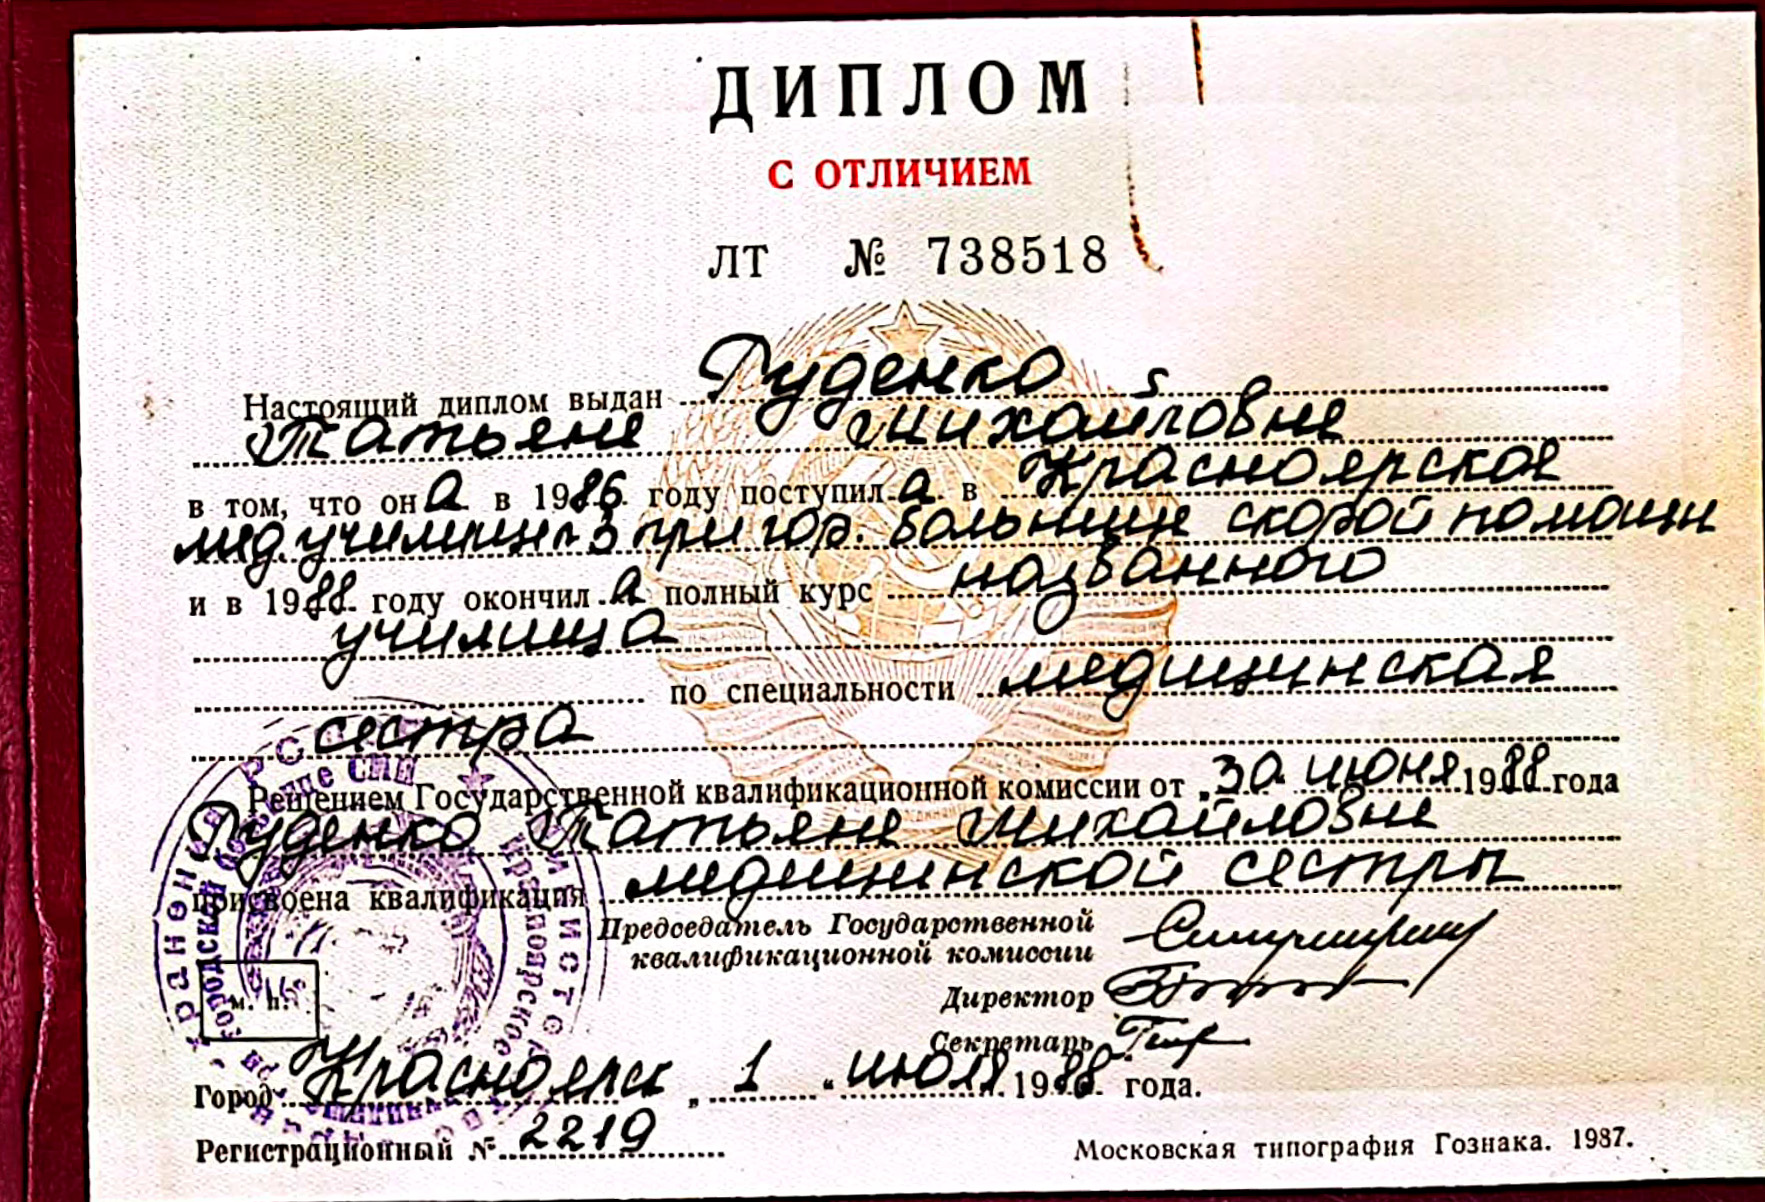 ДИПЛОМ
С ОТЛИЧИЕМ
ЛТ № 738518
Настоящий диплом выдан Руденко
Татьяне Михайловне
в том, что она в 1986 году поступила в Красноярское
мед. училище 3 при гор. больнице скорой помощи
и в 1988 году окончила полный курс названного
училища
по специальности медицинская
сестра
Решением Государственной квалификационной комиссии от „30 июня 1988 года
Руденко Татьяне Михайловне
присвоена квалификация медицинской сестры
Председатель Государственной
квалификационной комиссии
Директор
Секретарь
м. п.
Город Красноярск „1 “ июля 1988 года.
Регистрационный № 2219
Московская типография Гознака. 1987.